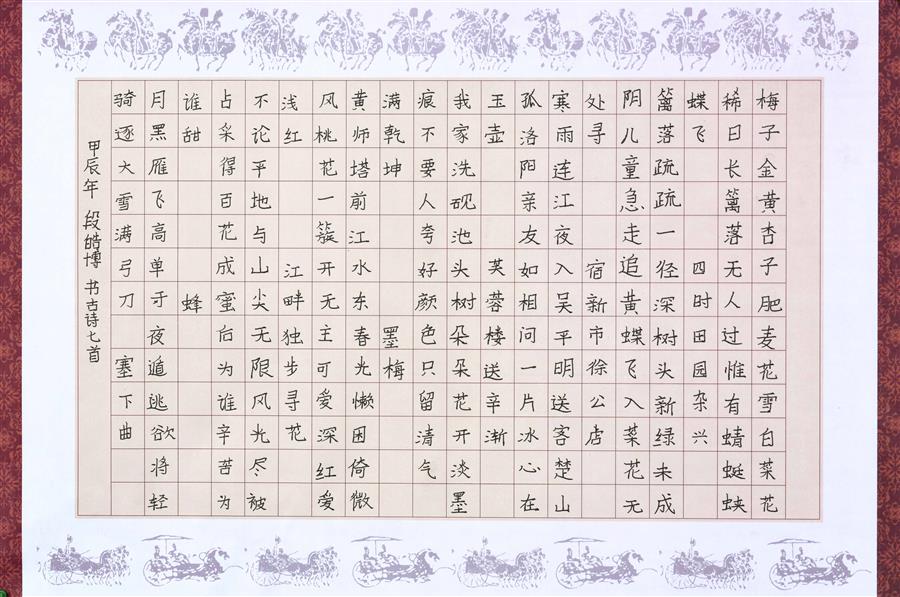 梅子金黄杏子肥麦花雪白菜花
稀日长篱落无人过惟有蜻蜓蛱
蝶飞 四时田园杂兴
篱落疏疏一径深树头新绿未成
阴儿童急走追黄蝶飞入菜花无
处寻 宿新市徐公店
寒雨连江夜入吴平明送客楚山
孤洛阳亲友如相问一片冰心在
玉壶 芙蓉楼送辛渐
我家洗砚池头树朵朵花开淡墨
痕不要人夸好颜色只留清气
满乾坤 墨梅
黄师塔前江水东春光懒困倚微
风桃花一簇开无主可爱深红爱
浅红 江畔独步寻花
不论平地与山尖无限风光尽被
占采得百花成蜜后为谁辛苦为
谁甜 蜂
月黑雁飞高单于夜遁逃欲将轻
骑逐大雪满弓刀 塞下曲
甲辰年 段皓博 书古诗七首